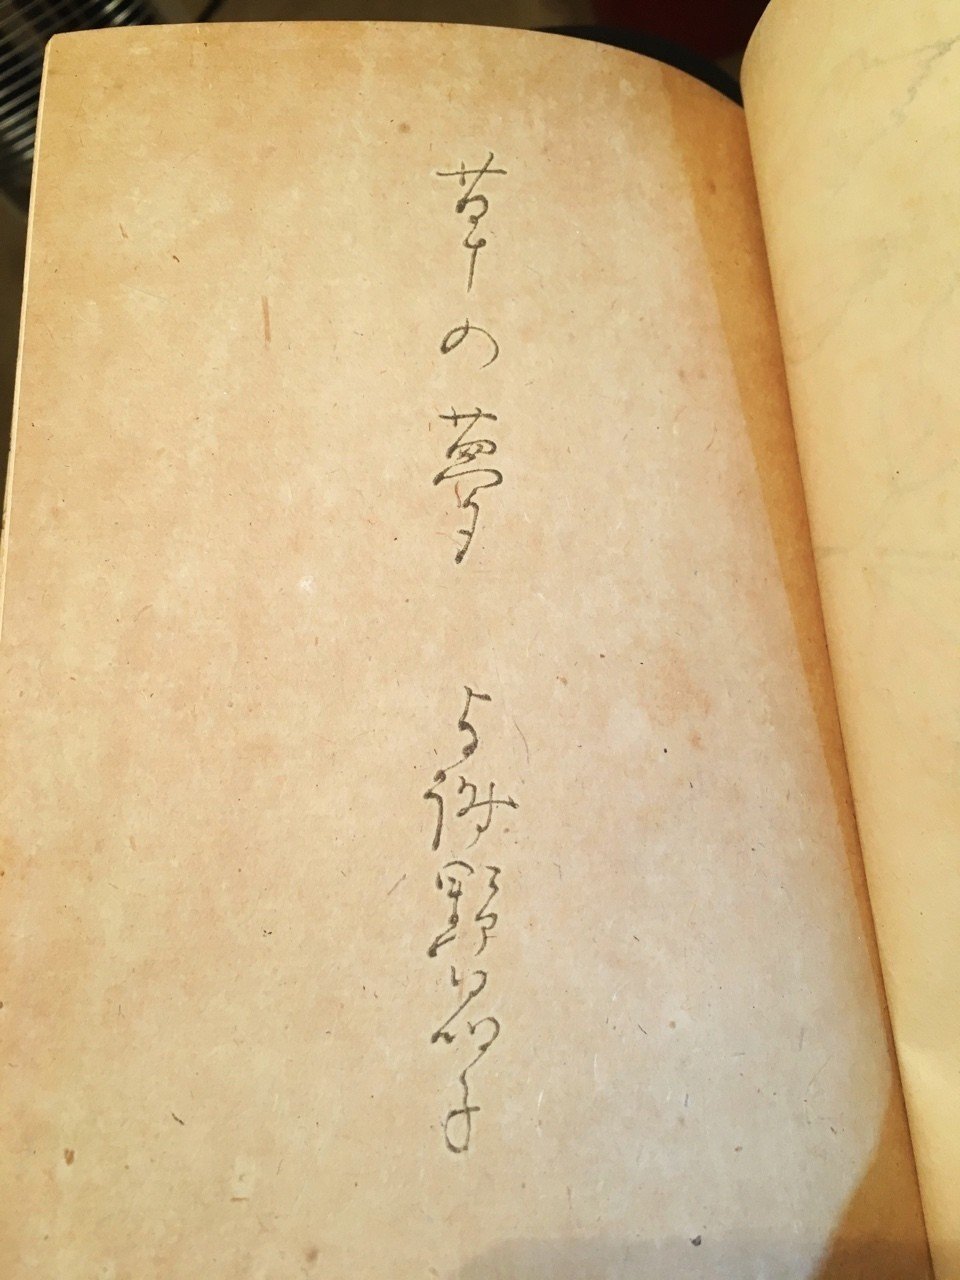 草の夢 与謝野晶子